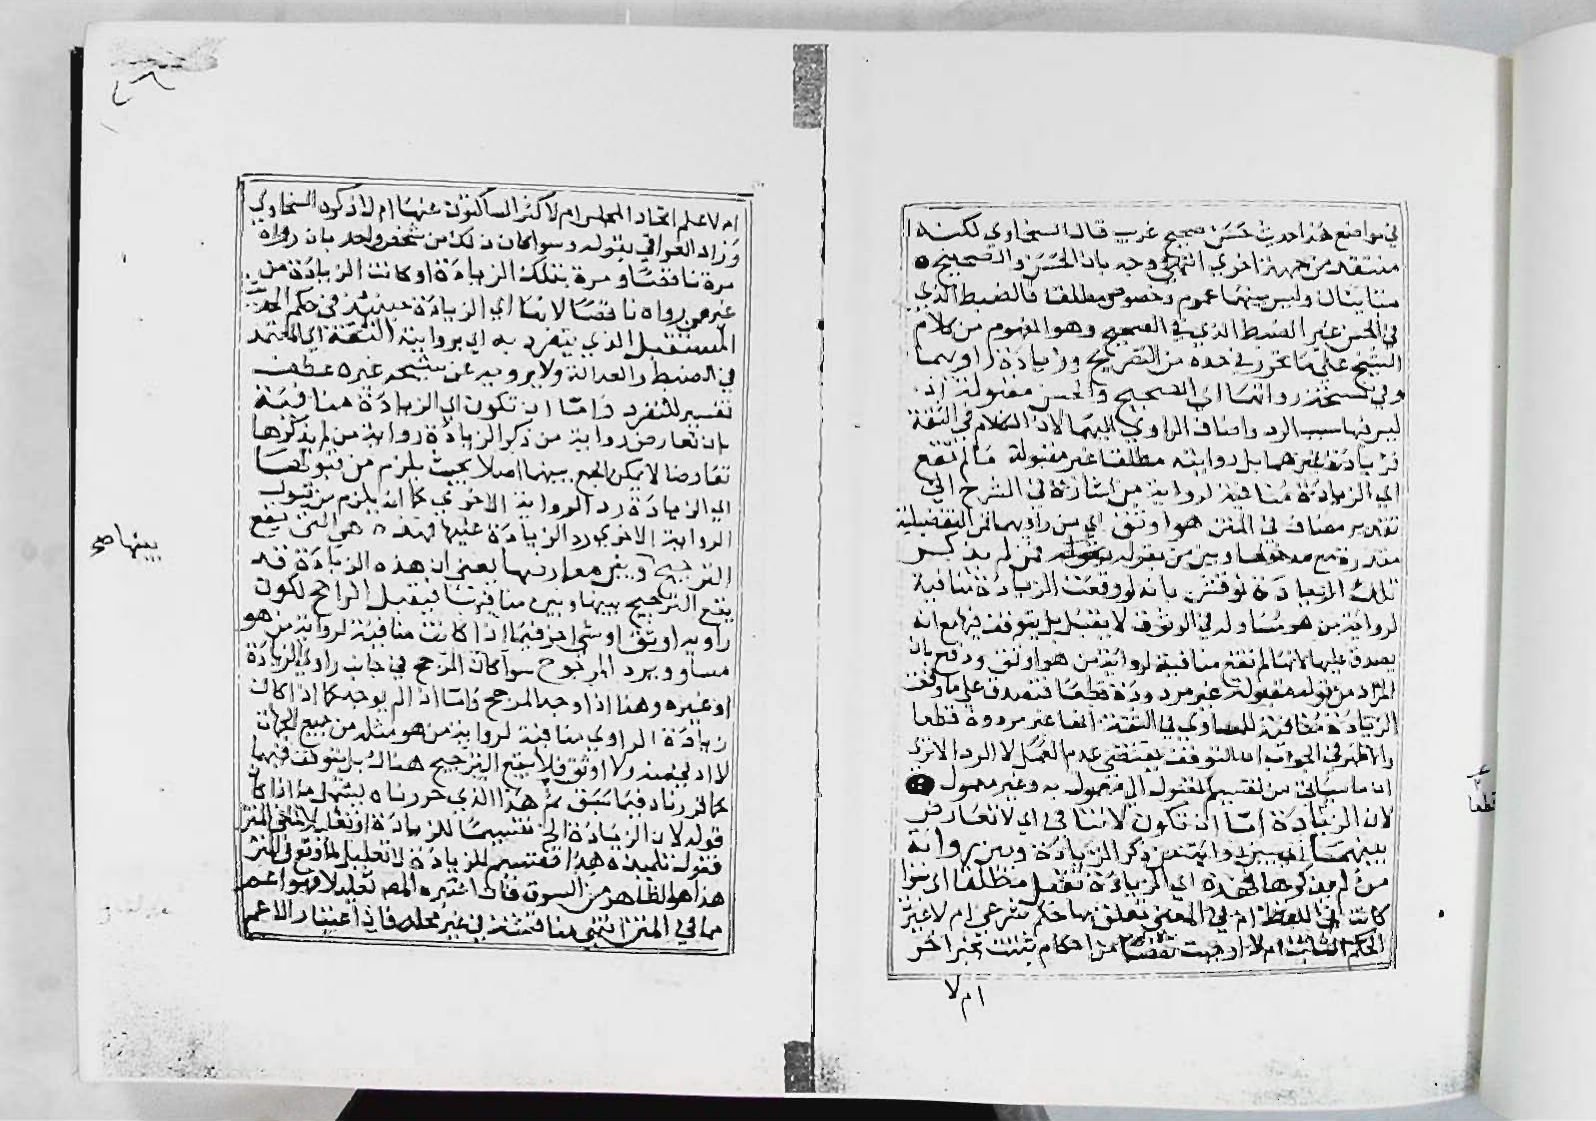 في مواضع هذا حديث حسن صحيح غريب قال السخاوي لكنه
منتقد من جهة اخري انتهي ووجه بان الحسن والصحيح
متباينان وليس بينهما عموم وخصوص مطلقا فالضبط الذي
في الحسن غير الضبط الذي في الصحيح وهو المفهوم من كلام
الشيخ علي ما تحرر في حده من التصريح وزيادة راويهما
وفي نسخة رواتهما اي الصحيح والحسن مقبولة اذ
ليس فيها سبب الرد واضاف الراوي اليهما لان الكلام في الثقة
فزيادة غيرهما بل روايته مطلقا غير مقبولة ما لم تقع
اي الزيادة منافية لرواية من اشارة في الشرح الي
تقدير مضاف في المتن هو اوثق اي من راويهما فمن التفضيلية
مقدرة مع مدخولها وبين من بقوله ممن لم يذكر
تلك الزيادة نوقش بانه لو وقعت الزيادة منافية
لرواية من هو مساو له في الوثوق لا يقبل بل يتوقف فيها مع انه
يصدق عليها انها لم تقع منافية لرواية من هو اوثق ودفع بان
المراد من قوله مقبولة غير مردودة قطعا فتصدق علي ما وقعت
الزيادة منافية للمساوي في الثقة انها غير مردودة قطعا
والاظهر في الجواب ان التوقف يقتضي عدم العمل لا الرد الا تري
ان ما سياتي من تقسيم المقبول الي معمول به وغير معمول
لان الزيادة اما ان تكون لا تنافي اي لا تعارض
بينهما اي بين رواية من ذكر الزيادة وبين رواية
من لم يذكرها فهذه اي الزيادة تقبل مطلقا اي سوا
كانت في اللفظ ام في المعني تعلق بها حكم شرعي ام لا غيرت
الحكم الثابت ام لا اوجبت نقصا من احكام ثبتت بخبر اخر
ام لا
قطعا
ام لا علم اتحاد المجلس ام لا كثر الساكتون عنها ام لا ذكره السخاوي
وزاد العراقي بقوله وسوا كان ذلك من شخص واحد بان رواه
مرة ناقصا ومرة بتلك الزيادة او كانت الزيادة من
غير من رواه ناقصا لانها اي الزيادة حينئذ في حكم الحديث
المستقبل الذي يتفرد به اي بروايته الثقة اي المعتمد
في الضبط والعدالة ولا يرويه عن شيخه غيره عطف
تفسير للتفرد واما ان تكون اي الزيادة منافية
بان تعارض رواية من ذكر الزيادة رواية من لم يذكرها
تعارضا لا يمكن الجمع بينهما اصلا بحيث يلزم من قبولها
اي الزيادة رد الرواية الاخري كما انه يلزم من قبول
الرواية الاخري رد الزيادة عليها فهذه هي التي يقع
الترجيح وبين معارضها يعني ان هذه الزيادة قد
يقع الترجيح بينها وبين منافيها فيقبل الراجح لكون
راويه اوثق او شي اخر فيما اذا كانت منافية لرواية من هو
مساو ويرد المرجوح سوا كان المرجح في جانب راوي الزيادة
او غيره وهذا اذا وجد المرجح واما اذا لم يوجد كما اذا كان
زيادة الراوي منافية لرواية من هو مثله من جميع الجهات
لا ادني منه ولا اوثق فلا يقع الترجيح هناك بل يتوقف فيها
كما قررناه فيما سبق ثم هذا الذي حررناه يشمل ما اذا كان
قوله لان الزيادة الخ تقسيما للزيادة او تعليلا لما في المتن
فقول تلميذه هذا تقسيم للزيادة لا تعليل لما وقع في المتن
هذا هو الظاهر من السوق فان اعتبره المص تعليلا فهو اعم
مما في المتن انتهي مناقشة في غير محله فان اعتبار الاعم
بينها صح